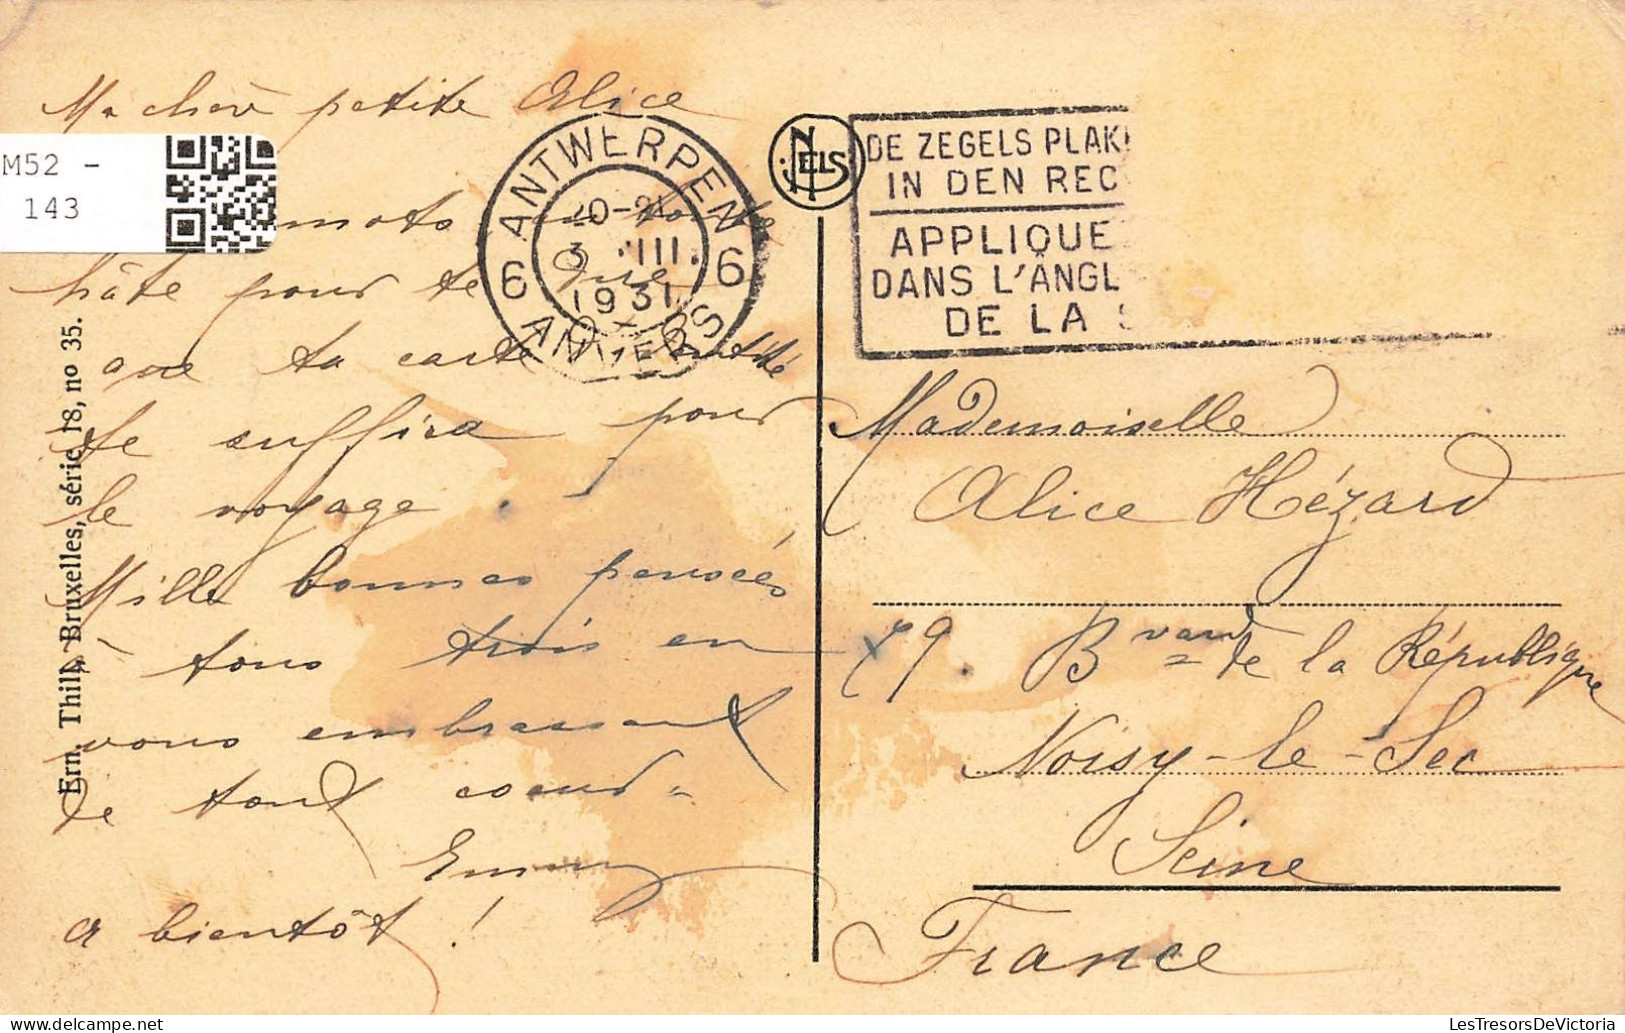 Ma chère petite Alice
mots en toute
hâte pour te dire
que ta carte d'identité
te suffira pour
le voyage.
Mille bonnes pensées
à tous trois en
vous embrassant
de tout coeur.
Emmy
a bientôt !
M52 -
143
Ern. Thill, Bruxelles, série 18, no 35.
ANTWERPEN
20-21
3 III
1931
6 6
ANVERS
NELS
DE ZEGELS PLAK
IN DEN REC
APPLIQUE
DANS L'ANGL
DE LA
Mademoiselle
Alice Hézard
79. Bvard de la République
Noisy-le-Sec
Seine
France
LesTresorsDeVictoria